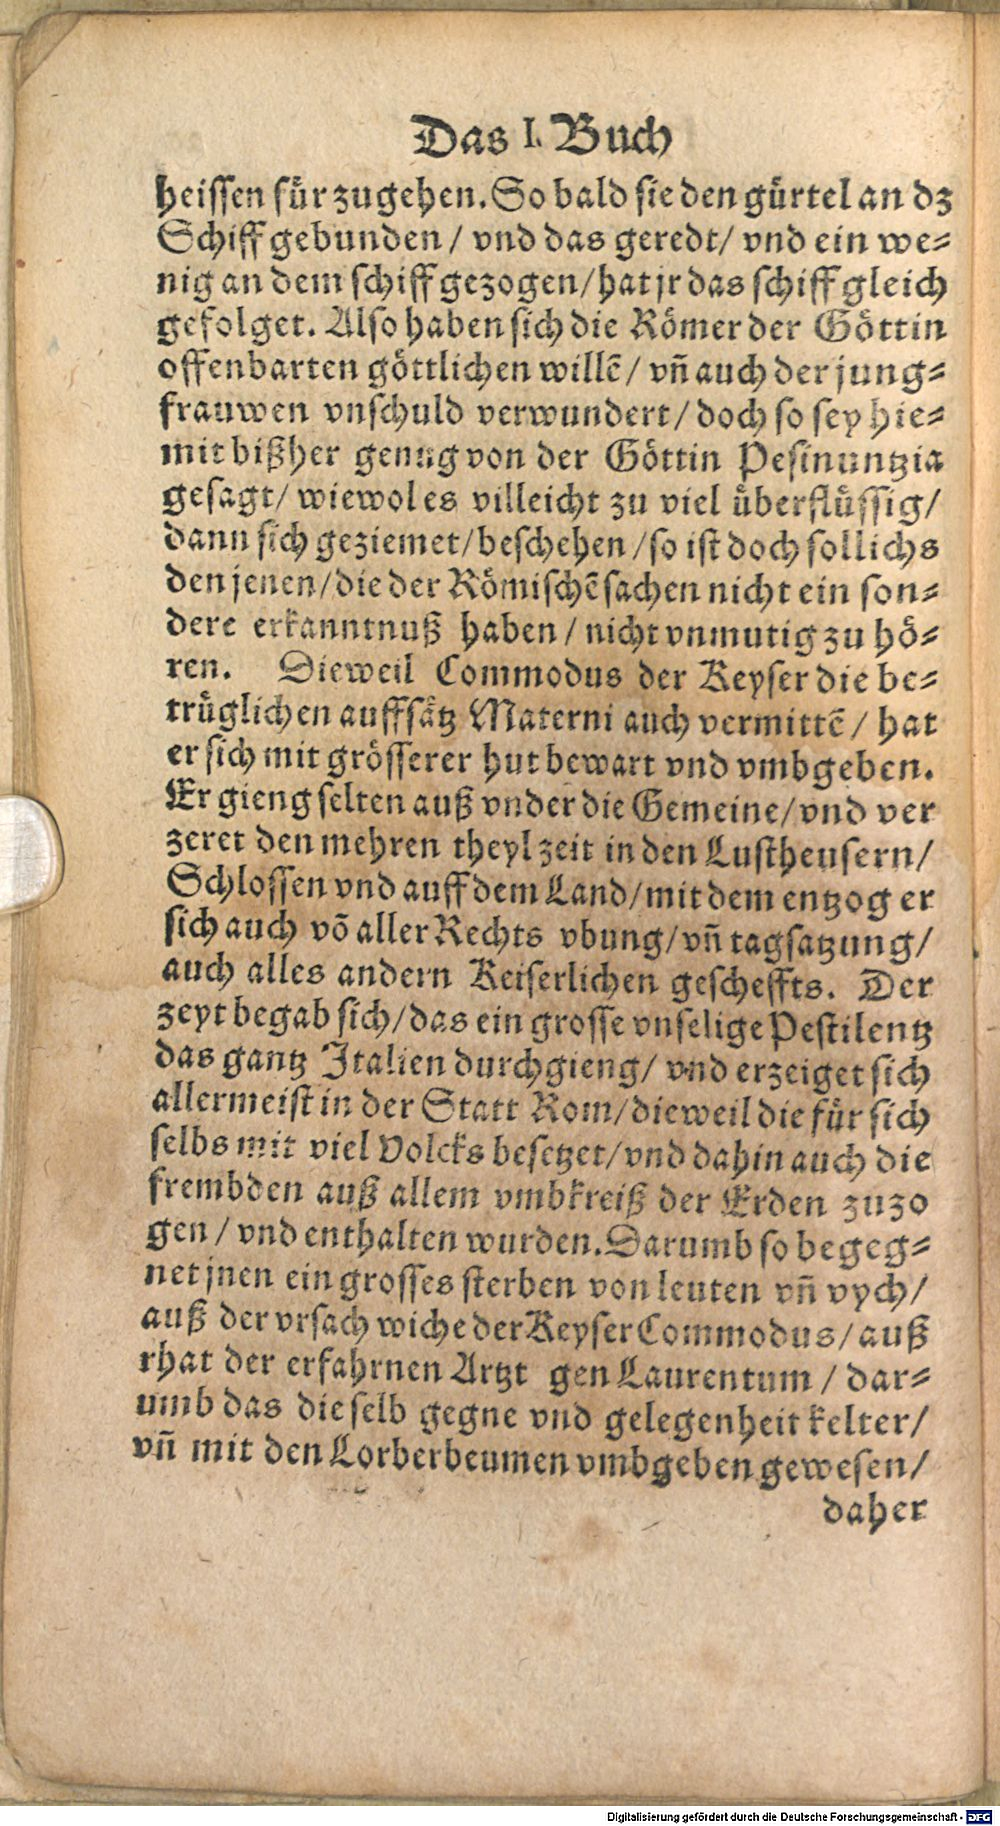 Das I. Buch
heissen für zugehen. So bald sie den gürtel an dz
Schiff gebunden / vnd das geredt / vnd ein we⸗
nig an dem schiff gezogen / hat jr das schiff gleich
gefolget. Also haben sich die Römer der Göttin
offenbarten göttlichen willē / vn̄ auch der jung⸗
frauwen vnschuld verwundert / doch so sey hie⸗
mit bißher genug von der Göttin Pesinuntzia
gesagt / wiewol es villeicht zu viel überflüssig /
dann sich geziemet / beschehen / so ist doch sollichs
den jenen / die der Römischē sachen nicht ein son⸗
dere erkanntnuß haben / nicht vnmutig zu hö⸗
ren. Dieweil Commodus der Keyser die be⸗
trüglichen auffsätz Materni auch vermittē / hat
er sich mit grösserer hut bewart vnd vmbgeben.
Er gieng selten auß vnder die Gemeine / vnd ver
zeret den mehren theyl zeit in den Lustheusern /
Schlossen vnd auff dem Land / mit dem entzog er
sich auch vō aller Rechts vbung / vn̄ tagsatzung /
auch alles andern Keiserlichen gescheffts. Der
zeyt begab sich / das ein grosse vnselige Pestilentz
das gantz Italien durchgieng / vnd erzeiget sich
allermeist in der Statt Rom / dieweil die für sich
selbs mit viel Volcks besetzet / vnd dahin auch die
frembden auß allem vmbkreiß der Erden zuzo
gen / vnd enthalten wurden. Darumb so begeg⸗
net jnen ein grosses sterben von leuten vn̄ vych /
auß der vrsach wiche der Keyser Commodus / auß
rhat der erfahrnen Artzt gen Laurentum / dar⸗
umb das die selb gegne vnd gelegenheit kelter /
vn̄ mit den Lorberbeumen vmbgeben gewesen /
daher
Digitalisierung gefördert durch die Deutsche Forschungsgemeinschaft - DFG